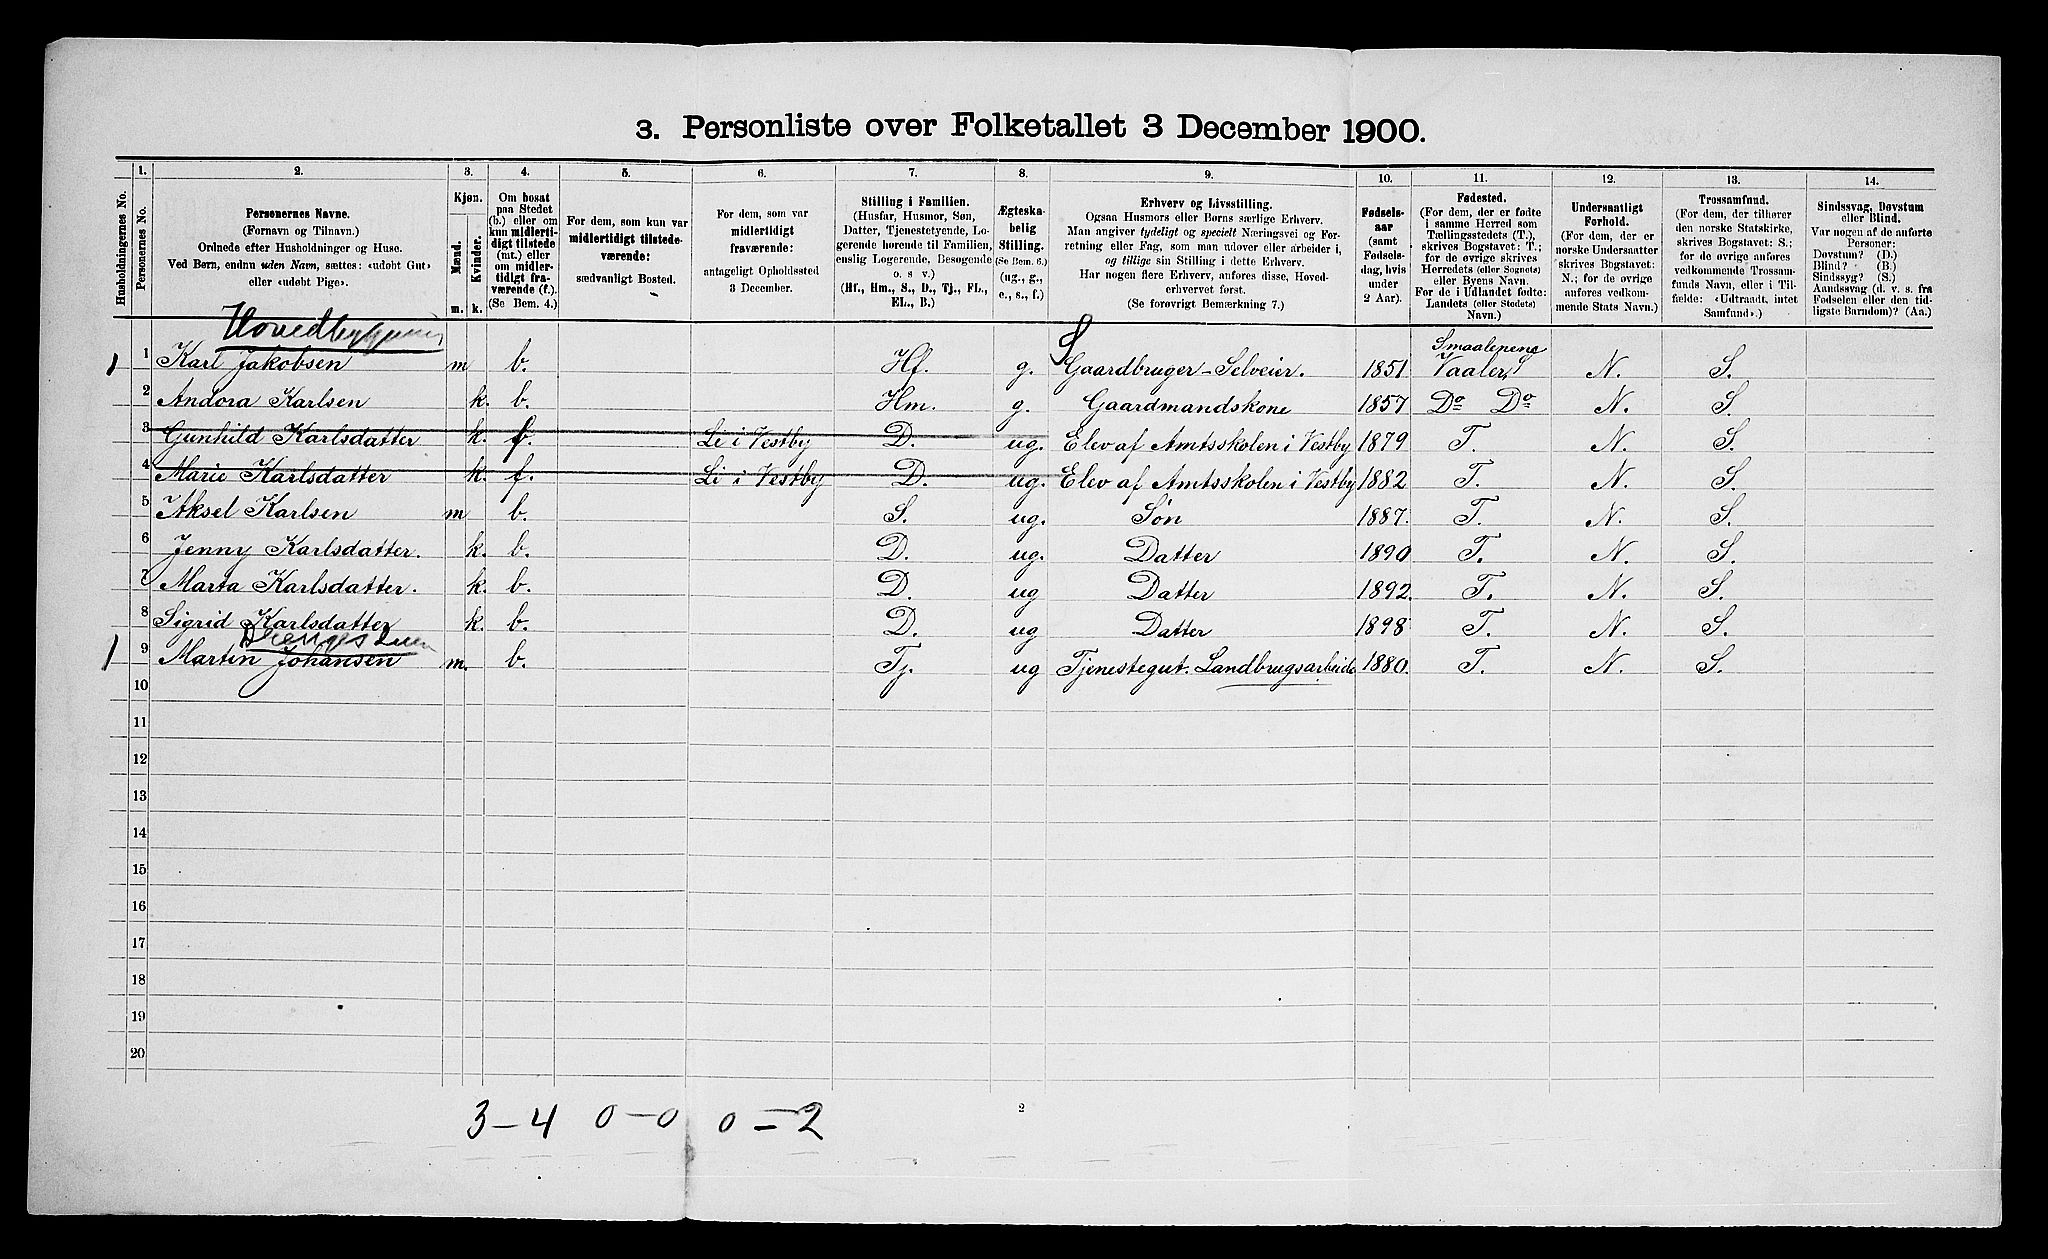 3. Personliste over Folketallet 3 December 1900.
1. 2. 3. 4. 5. 6. 7. 8. 9. 10. 11. 12. 13. 14.
Husholdningernes No.
Personernes No.
Personernes Navne.
(Fornavn og Tilnavn.)
Ordnede efter Husholdninger og Huse.
Ved Børn, endnu uden Navn, sættes: «udøbt Gut»
eller «udøbt Pige».
Kjøn.
Mænd.
Kvinder.
m. k.
Om bosat
paa Stedet
(b.) eller om
kun midlerti-
digt tilstede
(mt.) eller
om midler-
tidigt fra-
værende (f.).
(Se Bem. 4.)
For dem, som kun var
midlertidigt tilstede-
værende:
sædvanligt Bosted.
For dem, som var
midlertidigt
fraværende:
antageligt Opholdssted
3 December.
Stilling i Familien.
(Husfar, Husmor, Søn,
Datter, Tjenestetyende, Lo-
gerende hørende til Familien,
enslig Logerende, Besøgende
o. s v.)
(Hf., Hm., S., D., Tj., FL.,
EL., B.)
Ægteska-
belig
Stilling.
(Se Bem. 6.)
(ug., g.,
e., s., f.)
Erhverv og Livsstilling.
Ogsaa Husmors eller Børns særlige Erhverv.
Man angiver tydeligt og specielt Næringsvei og For-
retning eller Fag, som man udover eller arbeider i,
og tillige sin Stilling i dette Erhverv.
Har nogen flere Erhverv, anføres disse, Hoved-
erhvervet først.
(Se forøvrigt Bemærkning 7.)
Fødsels-
aar
(samt
Fødsels-
dag, hvis
under
2 Aar).
Fødested.
(For dem, der er fødte
i samme Herred som
Tællingsstedets (T.),
skrives Bogstavet: T.;
for de øvrige skrives
Herredets (eller Sognets)
eller Byens Navn.
For de i Udlandet fødte:
Landets (eller Stedets)
Navn.)
Undersaatligt
Forhold.
(For dem, der er
norske Undersaatter
skrives Bogstavet:
N.; for de øvrige
anføres vedkom-
mende Stats Navn.)
Trossamfund.
(For dem, der tilhører
den norske Statskirke,
skrives Bogstavet: S.;
for de øvrige anføres
vedkommende Trossam-
funds Navn, eller i Til-
fælde: «Udtraadt, intet
Samfund».)
Sindssvag, Døvstum
eller Blind.
Var nogen af de anførte
Personer:
Døvstum? (D.)
Blind? (B.)
Sindssyg? (S.)
Aandssvag (d. v. s. fra
Fødselen eller den tid-
ligste Barndom)? (Aa.)
Hovedbygning
1 1 Karl Jakobsen m b. Hf. g. Gaardbruger - Selveier. 1851 Smaalenene Vaaler N. S.
2 Andora Karlsen k. b. Hm. g. Gaardmandskone 1857 Do Do N. S.
3 Gunhild Karlsdatter k. f. Li i Vestby D. ug. Elev af Amtsskolen i Vestby 1879 T. N. S.
4 Marie Karlsdatter k. f. Li i Vestby D. ug. Elev af Amtsskolen i Vestby 1882 T. N. S.
5 Aksel Karlsen m b. S. ug. Søn 1887. T. N. S.
6 Jenny Karlsdatter. k. b. D. ug. Datter 1890 T. N. S.
7 Marta Karlsdatter. k. b. D. ug Datter 1892. T. N. S.
8 Sigrid Karlsdatter k. b. D. ug Datter 1898 T. N. S.
1 9 Martin Johansen m. b. Tj. ug Tjenestegut. Landbrugsarbeide 1880. T. N. S.
10
11
12
13
14
15
16
17
18
19
20
2
3 - 4 0 - 0 0 - 2